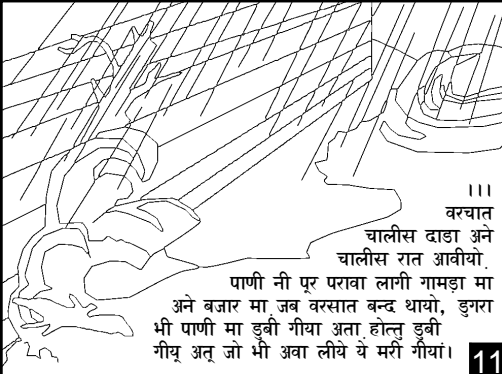 ।।।
वरचात
चालीस दाडा अने
चालीस रात आवीयो.
पाणी नी पूर परावा लागी गामड़ा मा
अने बजार मा. जब वरसात बन्द थायो, डुगरा
भी पाणी मा डुबी गीया अता. होत्तु डुबी
गीय् अत् जो भी अवा लीये ये मरी गीयां।
11